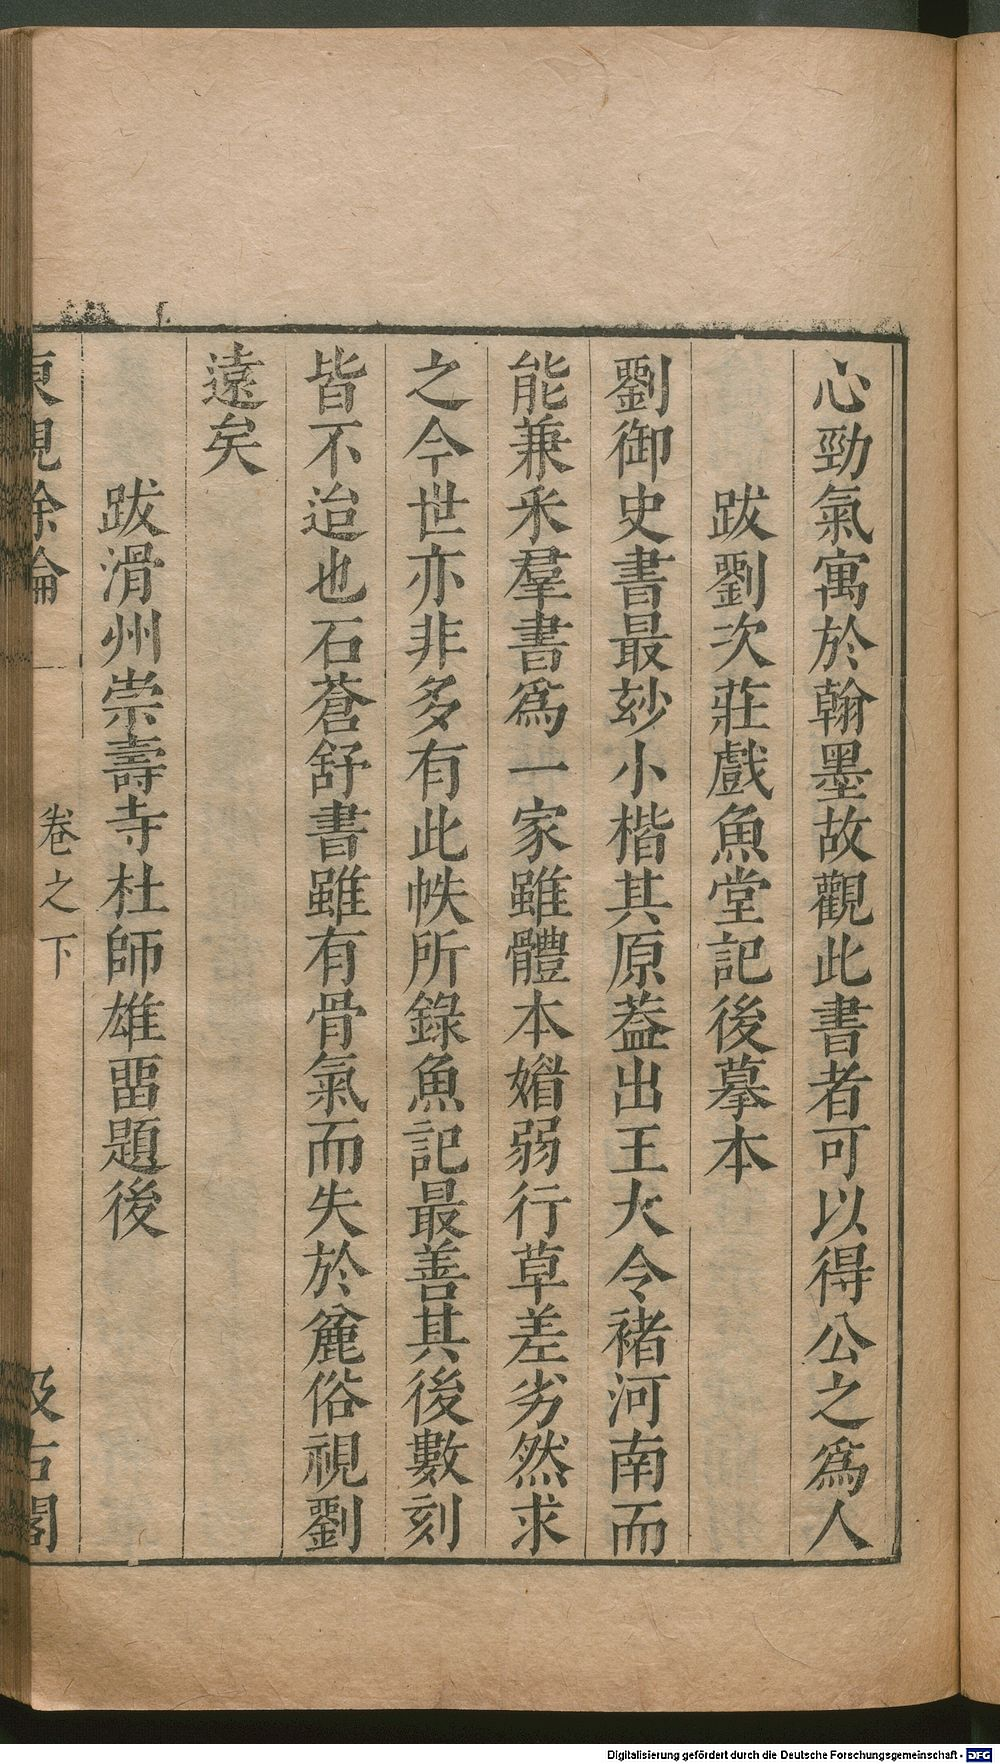 心勁氣寓於翰墨故觀此書者可以得公之爲人
跋劉次莊戲魚堂記後摹本
劉御史書最玅小楷其原葢出王大令褚河南而
能兼釆羣書爲一家雖體本媚弱行草差劣然求
之今世亦非多有此帙所錄魚記最善其後數刻
皆不迨也石蒼舒書雖有骨氣而失於麄俗視劉
遠矣
跋滑州崇壽寺杜師雄畱題後
東觀餘論
卷之下
汲古閣
Digitalisierung gefördert durch die Deutsche Forschungsgemeinschaft - DFG